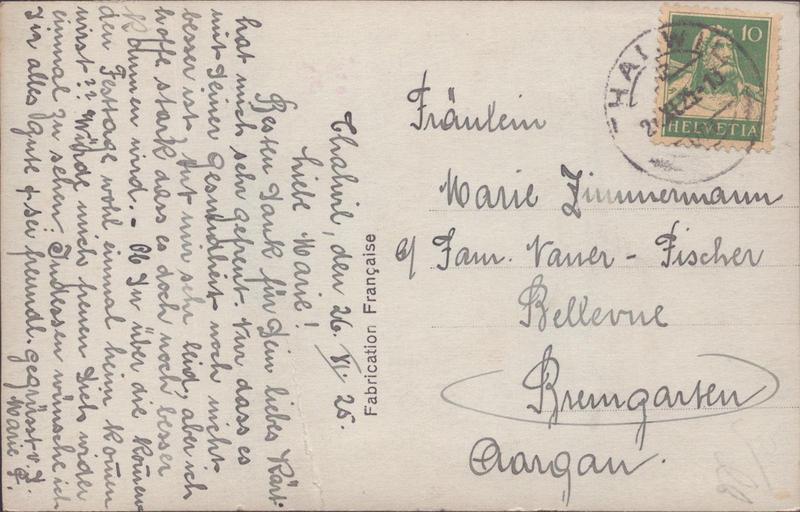 Thalwil, den 26. XI. 25.
Liebe Marie!
Besten Dank für Dein liebes Kärt.
hat mich sehr gefreut. Nur dass es
mit Deiner Gesundheit noch nicht
besser ist, tut mir sehr leid, aber ich
hoffe stark dass es doch noch besser
kommen wird. - Ob Du über die kommen
den Festtage wohl einmal heim kommen
wirst?? Würde mich freuen Dich wider
einmal zu sehen. Indessen wünsche ich
Dir alles Gute & sei freundl. gegrüsst v. D.
Marie
Fabrication Française
HELVETIA
10
Fräulein
Marie Zimmermann
c/ Fam. Vauer - Fischer
Bellevue
Bremgarten
Aargau.